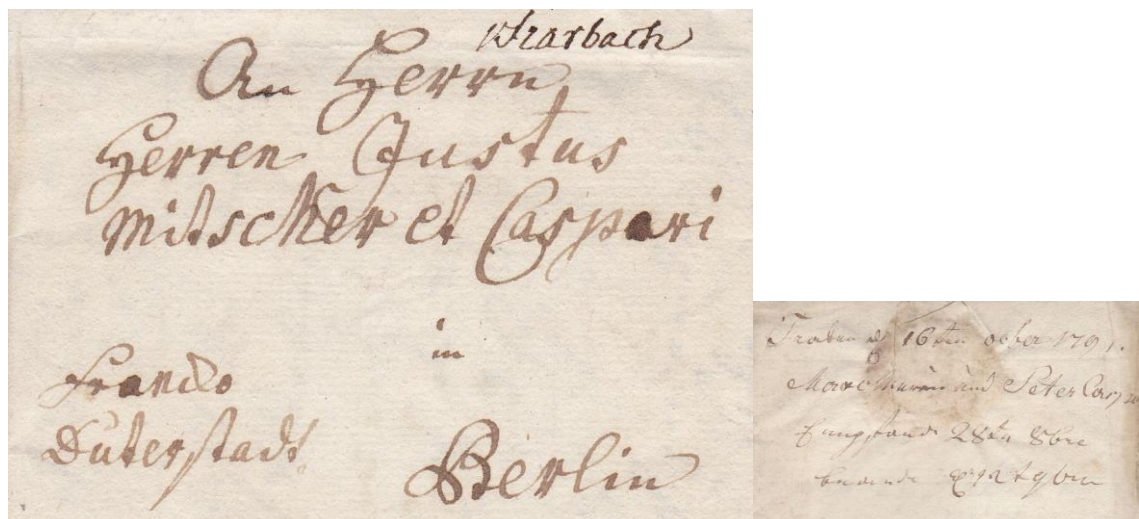 Trarbach
An Herrn
Herren Justus
Mitscher et Caspari
in
Francko
Duterstadt
Berlin
Traben 16ten octber 1791.
Marc und Peter Casp
Empfand 28tn 8bre